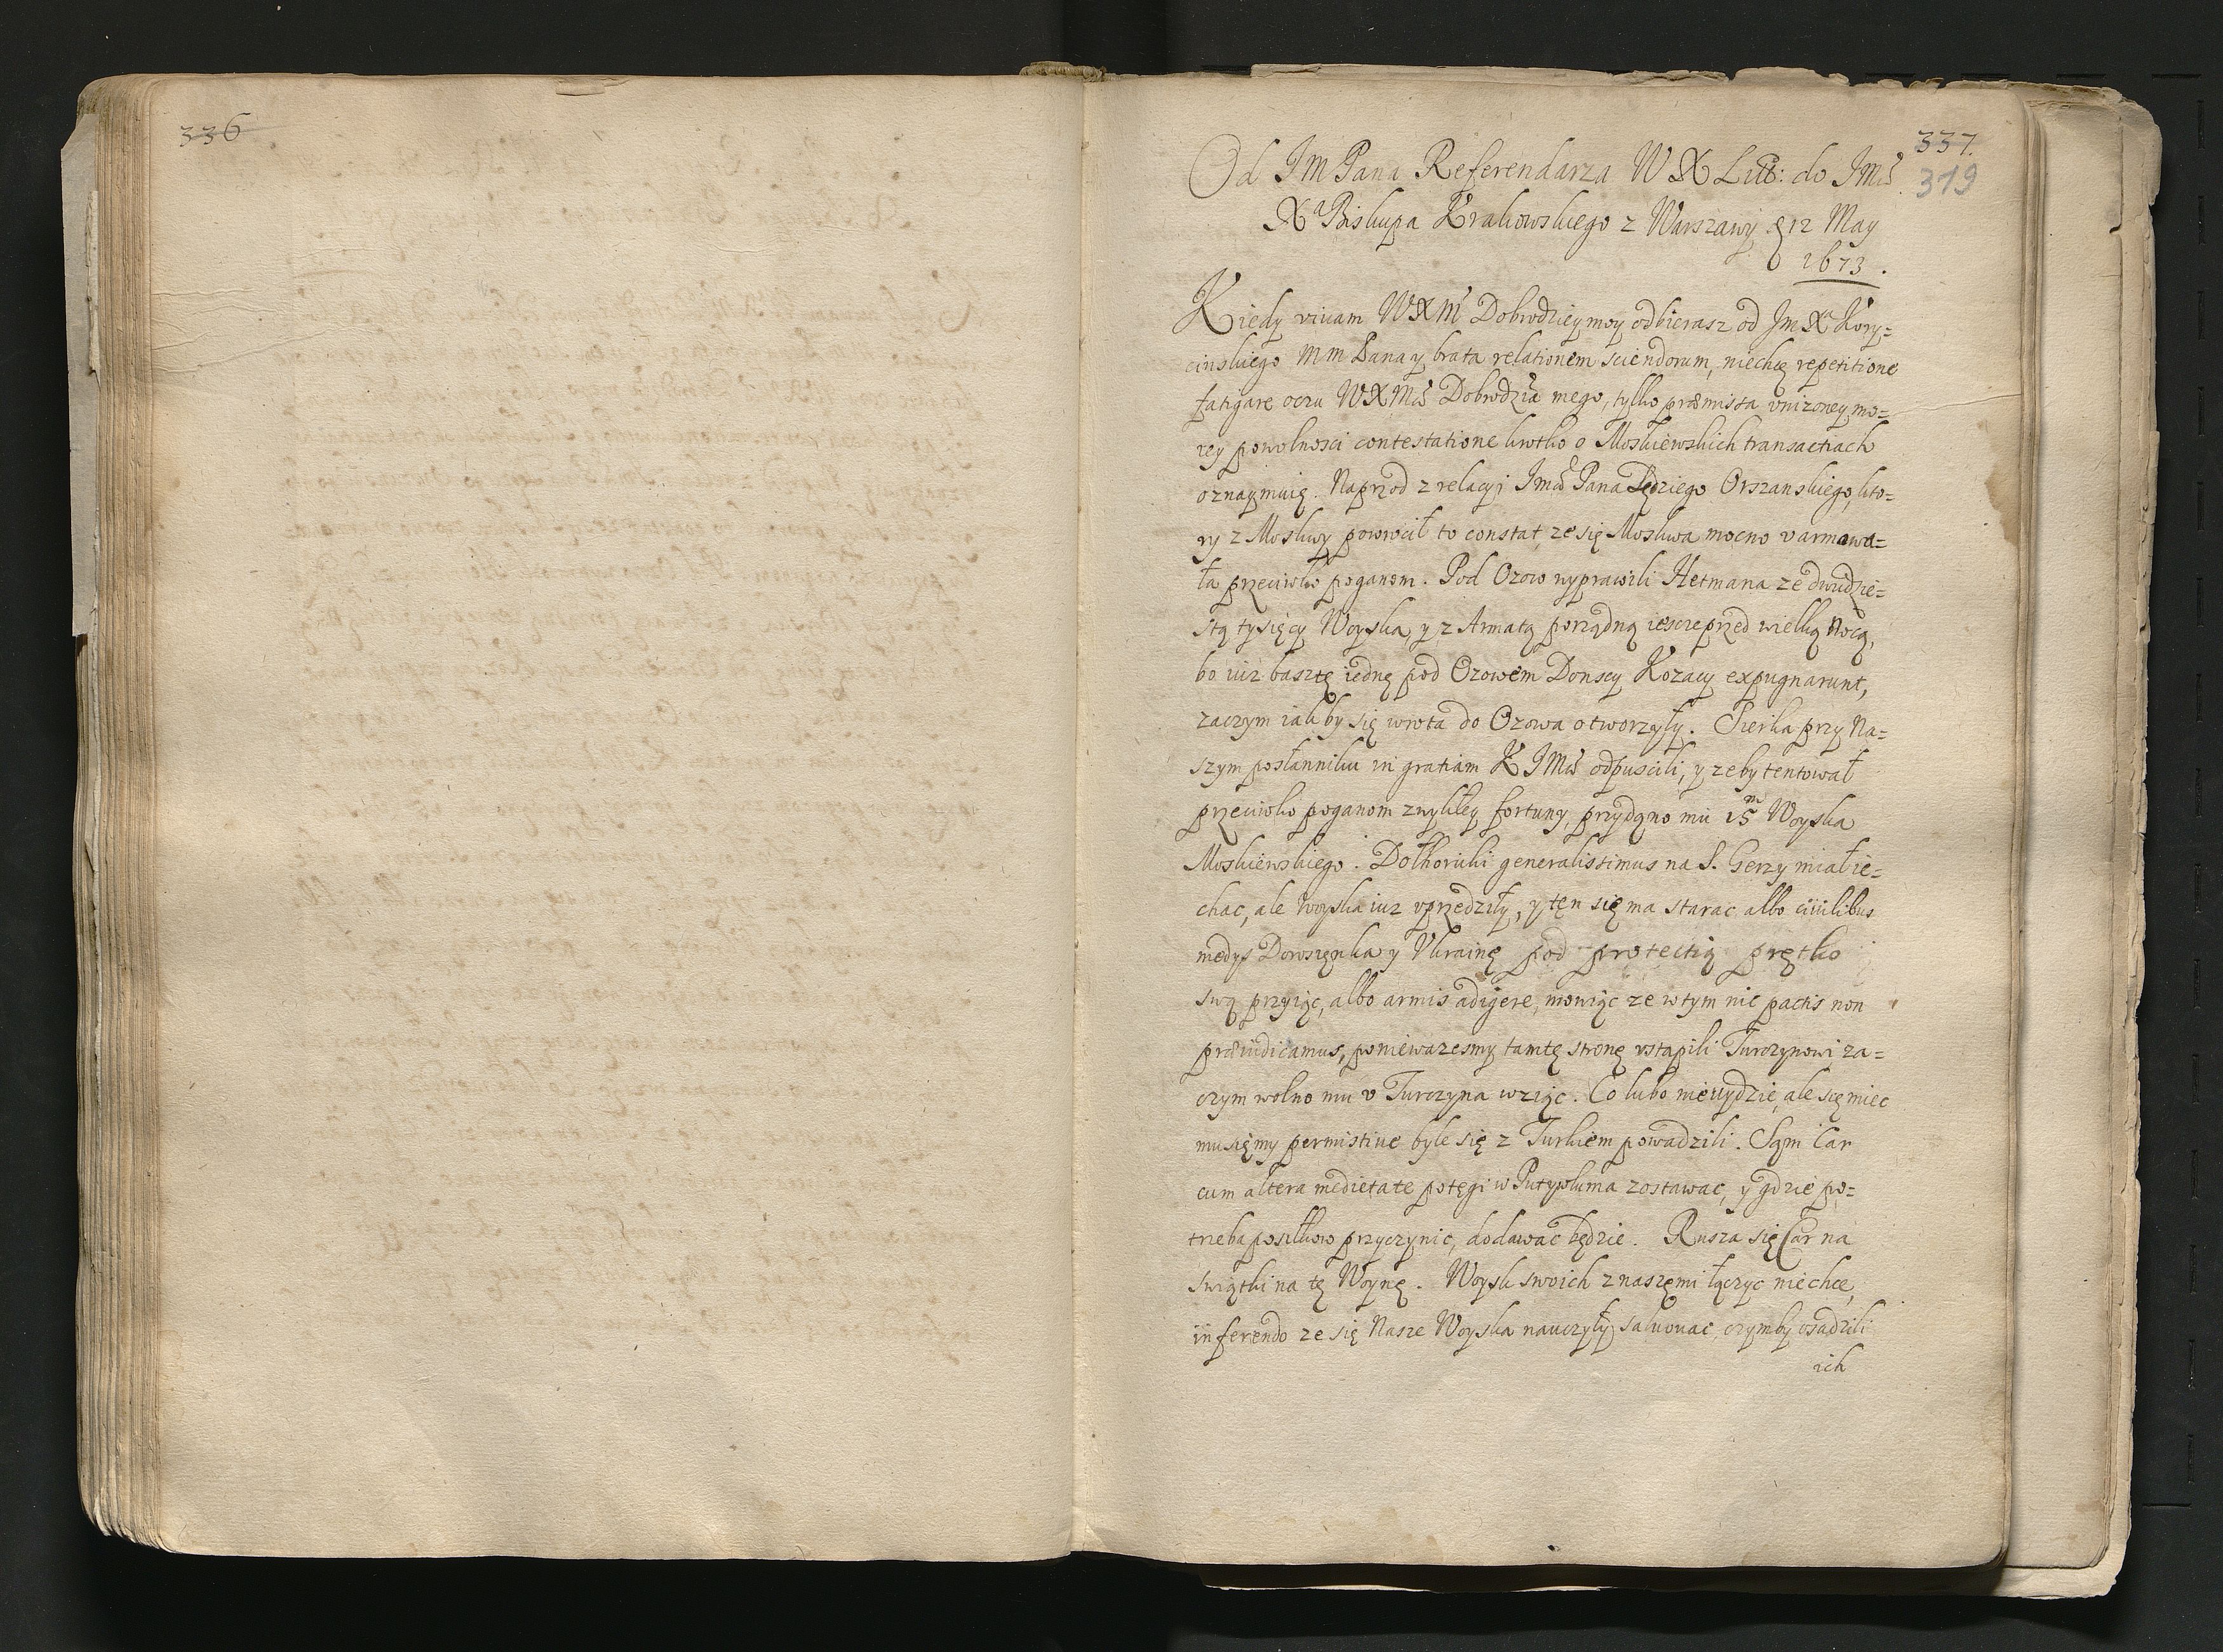 336
337.
319
Od JM Pana Referendarza W X Litt: do JMći
Xa Biskupa Krakowskiego z Warszawy 12 May
1673.
Kiedy vivam WXM Dobrodziey moy odbierasz od Jm Xa Kory=
cinskiego mm Pana y brata relationem sciendorum, niechcę repetitione
fatigare oczu WXMći Dobrodzia mego, tylko præmissa vnizoney mo=
iey powolnosci contestatione krotko o Moskiewskich transactiach
oznaymuię. Naprzod z relacyi Jmći Pana Sędziego Orszanskiego, kto=
ry z Moskwy powrocił to constat, ze się Moskwa mocno varmowa=
ła przeciwko poganom. Pod Ozow wyprawili Hetmana ze dwudzie=
stą tysięcy Woyska, y z Armatą porządną ieszcze przed wielką Nocą,
bo iuz basztę iednę pod Ozowem Donscy Kozacy expugnarunt,
zaczym iakby się wrota do Ozowa otworzyły. Sierka przy Na=
szym posłanniku in gratiam K JMći odpuscili, y zeby tentował
przeciwko poganom zwykłey fortuny, przydano mu 15 m Woyska
Moskiewskiego. Dołhoruki generalissimus na S. Gerzy miał ie=
chac, ale Woyska iuz vprzedziły, y ten się ma starac albo ciuilibus
medys Doroszęnka y Vkrainę pod protectią prętko
swą przyiąc, albo armis adigere, mowiąc ze w tym nic pactis non
præiudicamus, poniewazesmy tamtę stronę vstąpili Turczynowi za=
czym wolno mu v Turczyna wziąc. Co lubo nie uydzie, ale się miec
musięmy permistiue byle się z Turkiem powadzili. Sąm Car
cum altera medietate potęgi w Putywlu ma zostawac, y gdzie po=
trzeba posiłkow przyczynic, dodawac będzie. Rusza się Car na
swiątki na tę Woynę. Woysk swoich z naszęmi łączyc niechce,
inferendo ze się Nasze Woyska nauczyły saluouac, czymby osadzili
ich